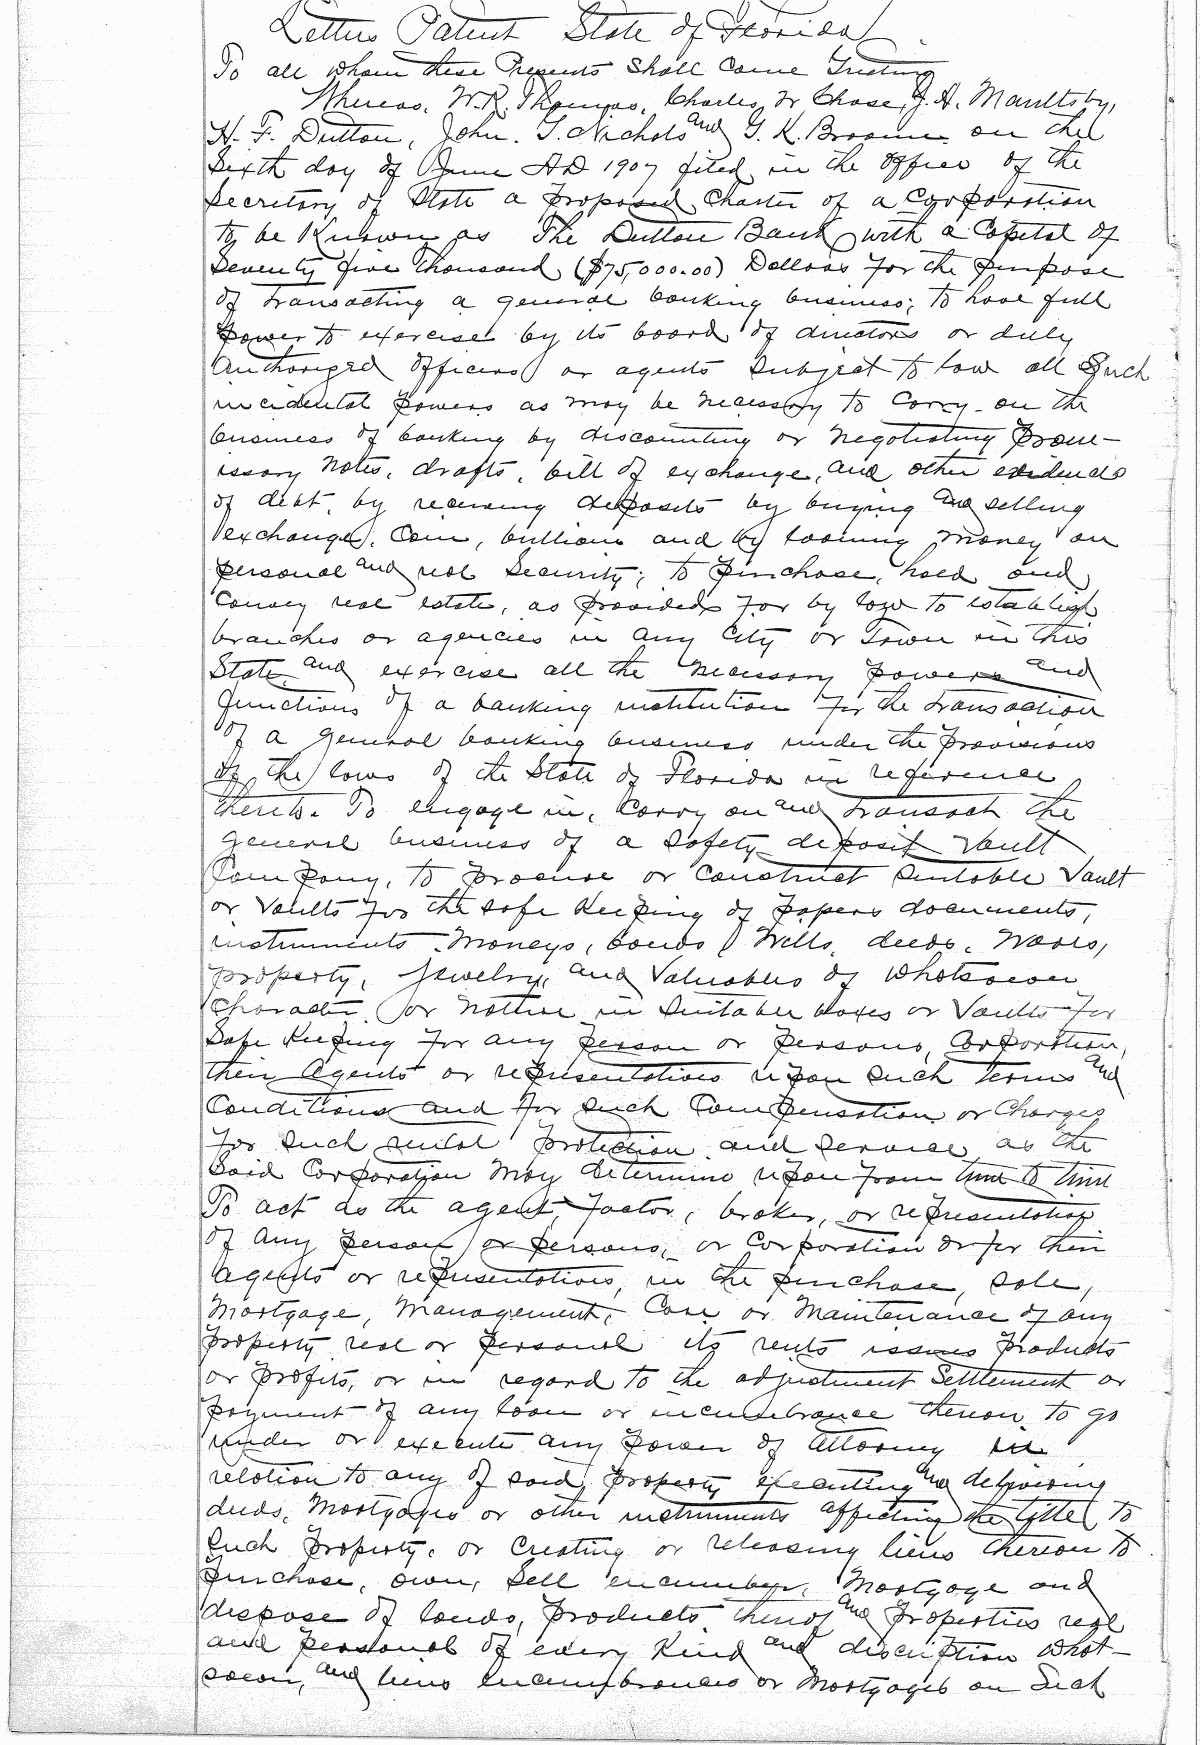 Letters Patent State of Florida.
To all whom these Presents Shall Come Greeting
Whereas, W. R. Thomas, Charles W Chase, J. A. Maultsby,
H. F. Dutton, John. G. Nichols and G. K. Broome on the
Sixth day of June AD 1907 filed in the office of the
Secretary of State a proposed Charter of a Corporation
to be Known as The Dutton Bank with a Capital of
Seventy five Thousand ($75,000.00) Dollars for the purpose
of transacting a general banking business; to have full
power to exercise by its board of directors or duly
authorized officers or agents subject to law all Such
incidental powers as may be necessary to carry on the
business of banking by discounting or negotiating prom-
issory notes, drafts, bill of exchange, and other evidences
of debt, by receiving deposits by buying and selling
exchange, Coin, bullion and by loaning money on
personal and real Security; to purchase, hold and
Convey real estate, as provided for by law to establish
branches or agencies in any City or Town in this
State, and exercise all the necessary powers and
functions of a banking institution for the transaction
of a general banking business under the provisions
of the laws of the State of Florida in reference
thereto. To engage in, Carry on and transact the
general business of a safety deposit vault
Company, to procure or construct suitable Vault
or Vaults for the safe Keeping of papers documents,
instruments, Moneys, bonds, Wills, deeds, Wares,
property, Jewelry, and Valuables of whatsoever
Character, or nature in suitable boxes or Vaults for
Safe Keeping for any person or persons, Corporation,
their agents or representatives upon such terms and
Conditions and for such Compensation or Charges
for such rental protection and service as the
Said Corporation may determine upon from time to time
To act as the agent, factor, broker, or representative
of any person or persons, or Corporation or for their
agents or representatives, in the purchase, sale,
Mortgage, Management, Care or Maintenance of any
property real or personal its rents issues products
or profits, or in regard to the adjustment Settlement or
payment of any loan or incumbrance thereon, to go
under or execute any power of attorney in
relation to any of said property executing and delivering
deeds, Mortgages or other instruments affecting the title to
such property, or creating or releasing liens thereon to
purchase, own, Sell encumber, Mortgage and
dispose of bonds, products thereof and properties real
and personal of every Kind and discription what-
soever, and liens encumbrances or Mortgages on Such